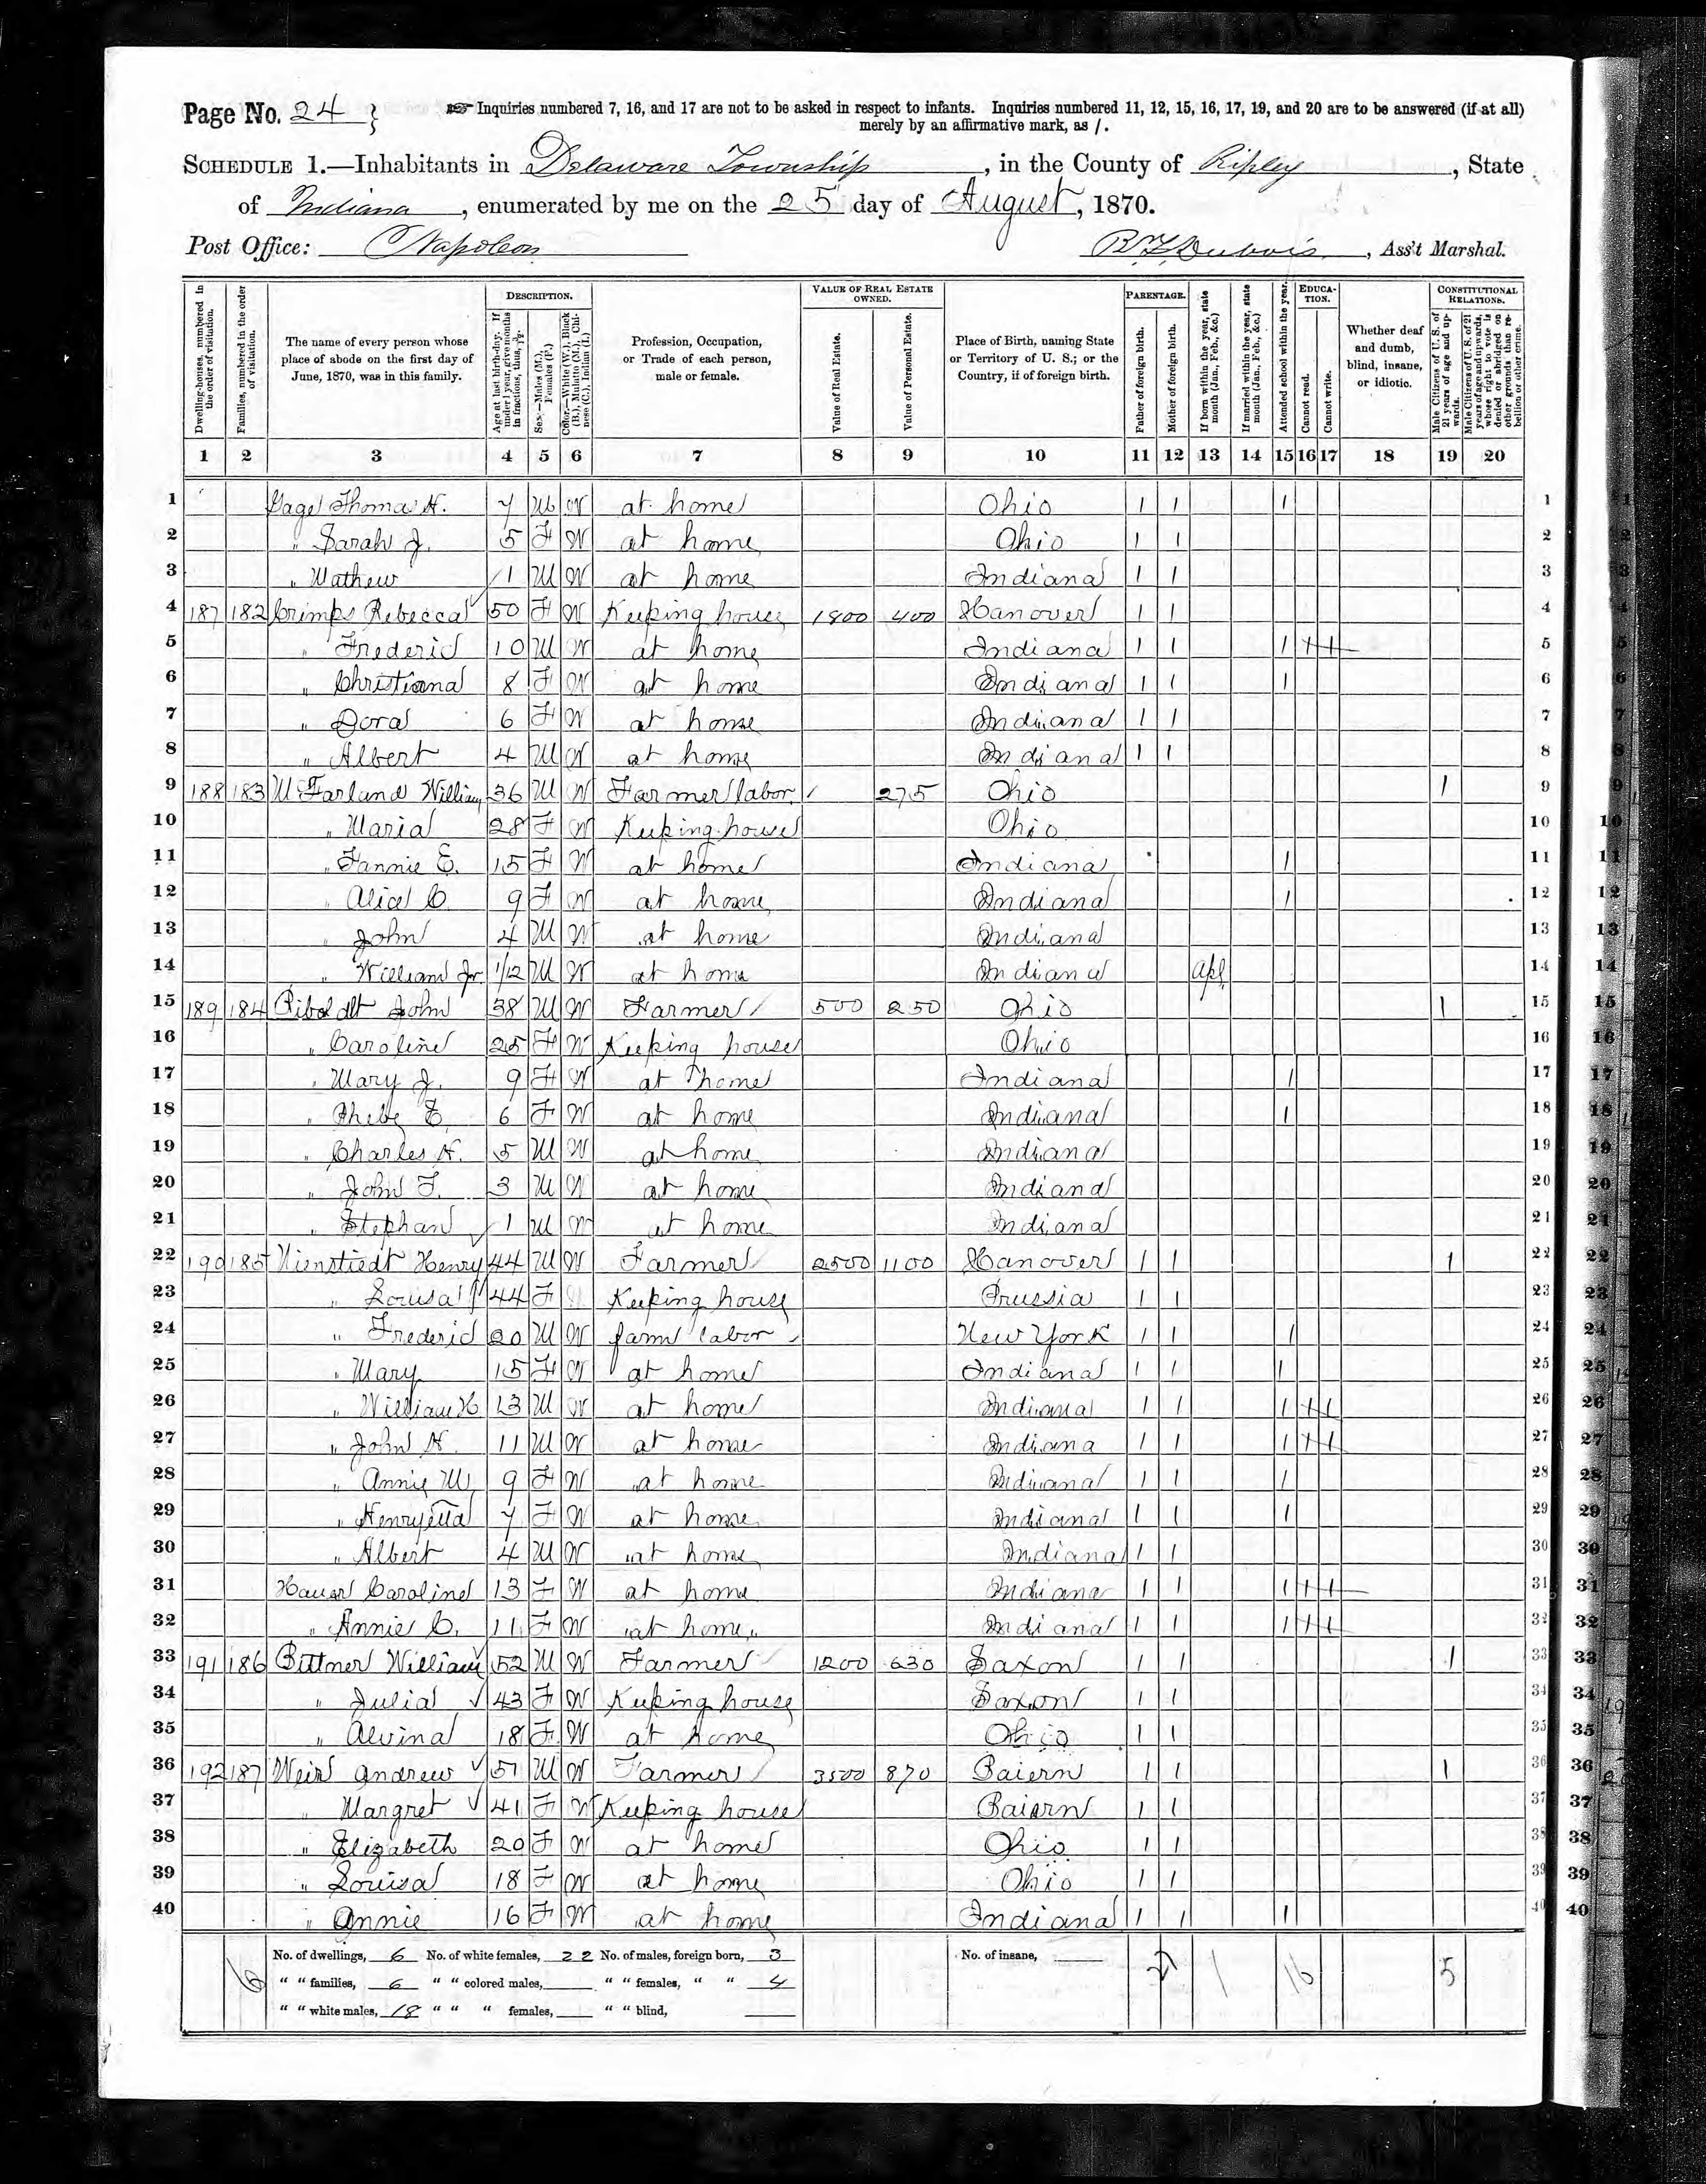 Page No. 24 }
Inquiries numbered 7, 16, and 17 are not to be asked in respect to infants. Inquiries numbered 11, 12, 15, 16, 17, 19, and 20 are to be answered (if at all)
merely by an affirmative mark, as /.
SCHEDULE 1.—Inhabitants in Delaware Township, in the County of Ripley, State
of Indiana, enumerated by me on the 25 day of August, 1870.
Post Office: Napoleon Dubois, Ass't Marshal.
Dwelling-houses, numbered in the order of visitation.
Families, numbered in the order of visitation.
The name of every person whose place of abode on the first day of June, 1870, was in this family.
DESCRIPTION.
Age at last birth-day. If under 1 year, give months in fractions, thus, 3/12.
Sex.—Males (M.), Females (F.)
Color.—White (W.), Black (B.), Mulatto (M.), Chinese (C.), Indian (I.)
Profession, Occupation, or Trade of each person, male or female.
VALUE OF REAL ESTATE OWNED.
Value of Real Estate.
Value of Personal Estate.
Place of Birth, naming State or Territory of U. S.; or the Country, if of foreign birth.
PARENTAGE.
Father of foreign birth.
Mother of foreign birth.
If born within the year, state month (Jan., Feb., &c.)
If married within the year, state month (Jan., Feb., &c.)
Attended school within the year.
EDUCATION.
Cannot read.
Cannot write.
Whether deaf and dumb, blind, insane, or idiotic.
CONSTITUTIONAL RELATIONS.
Male Citizens of U. S. of 21 years of age and upwards.
Male Citizens of U. S. of 21 years of age and upwards, whose right to vote is denied or abridged on other grounds than rebellion or other crime.
1 2 3 4 5 6 7 8 9 10 11 12 13 14 15 16 17 18 19 20
1 Gage Thomas H. 7 M W at home Ohio 1 1 1 1
2 " Sarah J. 5 F W at home Ohio 1 1 2
3 " Mathew 1 M W at home Indiana 1 1 3
4 187 182 Crimps Rebecca 50 F W Keeping house 1800 400 Hanover 1 1 4
5 " Frederic 10 M W at home Indiana 1 1 1 + + 5
6 " Christiana 8 F W at home Indiana 1 1 1 6
7 " Dora 6 F W at home Indiana 1 1 7
8 " Albert 4 M W at home Indiana 1 1 8
9 188 183 McFarland William 36 M W Farmer labor 275 Ohio 1 9
10 " Maria 28 F W Keeping house Ohio 10
11 " Fannie E. 15 F W at home Indiana 1 11
12 " Alice C. 9 F W at home Indiana 1 12
13 " John 4 M W at home Indiana 13
14 " William Jr. 1/12 M W at home Indiana Apl 14
15 189 184 John 38 M W Farmer 500 250 Ohio 1 15
16 " Caroline 25 F W Keeping house Ohio 16
17 " Mary J. 9 F W at home Indiana 1 17
18 " Phebe E. 6 F W at home Indiana 1 18
19 " Charles H. 5 M W at home Indiana 19
20 " John F. 3 M W at home Indiana 20
21 " Stephan 1 M W at home Indiana 21
22 190 185 Nienstiedt Henry 44 M W Farmer 2500 1100 Hanover 1 1 1 22
23 " Lousa 44 F W Keeping house Prussia 1 1 23
24 " Frederic 20 M W farm labor New York 1 1 1 24
25 " Mary 15 F W at home Indiana 1 1 1 25
26 " William H 13 M W at home Indiana 1 1 1 + + 26
27 " John H. 11 M W at home Indiana 1 1 1 + + 27
28 " Annie M 9 F W at home Indiana 1 1 1 28
29 " Henryetta 7 F W at home Indiana 1 1 1 29
30 " Albert 4 M W at home Indiana 1 1 30
31 Hauer Caroline 13 F W at home Indiana 1 1 1 + + 31
32 " Annie C. 11 F W at home Indiana 1 1 1 + + 32
33 191 186 Bittner William 52 M W Farmer 1200 630 Saxon 1 1 1 33
34 " Julia 43 F W Keeping house Saxon 1 1 34
35 " Alvina 18 F W at home Ohio 1 1 35
36 192 187 Weir Andrew 51 M W Farmer 3500 870 Baiern 1 1 1 36
37 " Margret 41 F W Keeping house Baiern 1 1 37
38 " Elizabeth 20 F W at home Ohio 1 1 38
39 " Louisa 18 F W at home Ohio 1 1 39
40 " Annie 16 F W at home Indiana 1 1 1 40
No. of dwellings, 6 No. of white females, 22 No. of males, foreign born, 3 No. of insane,
" " families, 6 " " colored males, " " females, " " 4
" " white males, 18 " " " females, " " blind,
6 27 1 16 5